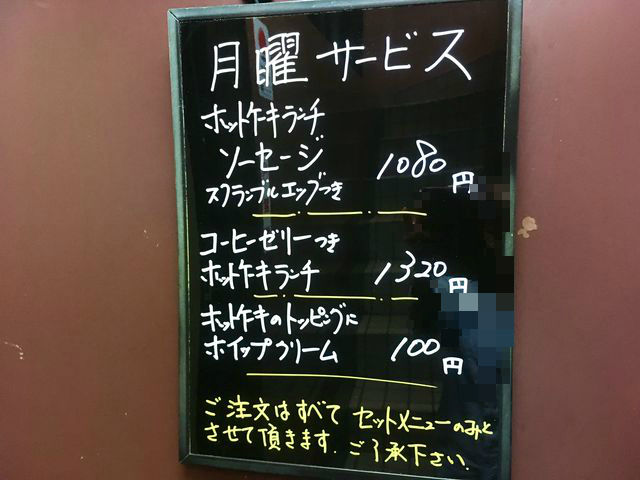 月曜サービス
ホットケーキランチ
ソーセージ 1080円
スクランブルエッグつき
コーヒーゼリーつき
ホットケーキランチ 1320円
ホットケーキのトッピングに
ホイップクリーム 100円
ご注文はすべて セットメニューのみと
させて頂きます。ご了承下さい。